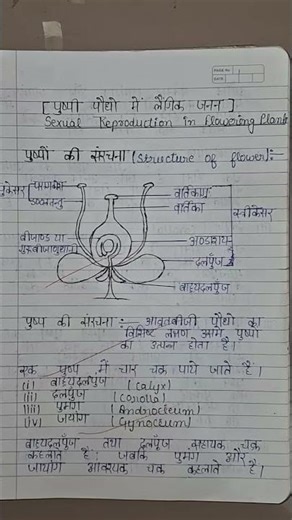 PAGE NO.
DATE
[ पुष्पी पौधो में लैंगिक जनन ]
Sexual Reproduction in flowering Plants
पुष्पों की संरचना (structure of flower):-
पुंकेसर
परागकोश
वर्तिकाग्र
वर्तिका
स्त्रीकेसर
बीजाण्ड या
अण्डाशय
दलपुंज
बाह्यदलपुंज
पुष्प की संरचना :- आवृतबीजी पौधो का
विशिष्ट लक्षण आम पुष्पो
का उत्पन्न होता है।
एक पुष्प में चार चक्र पाये जाते हैं।
(i) बाह्यदलपुंज (Calyx)
(ii) दलपुंज (Corolla)
(iii) पुमंग (Androcium)
(iv) जयांग (Gynocium)
बाह्यदलपुंज तथा दलपुंज सहायक चक्र
कहलाते हैं। जबकि पुमंग और
जायांग आवश्यक चक्र कहलाते हैं।